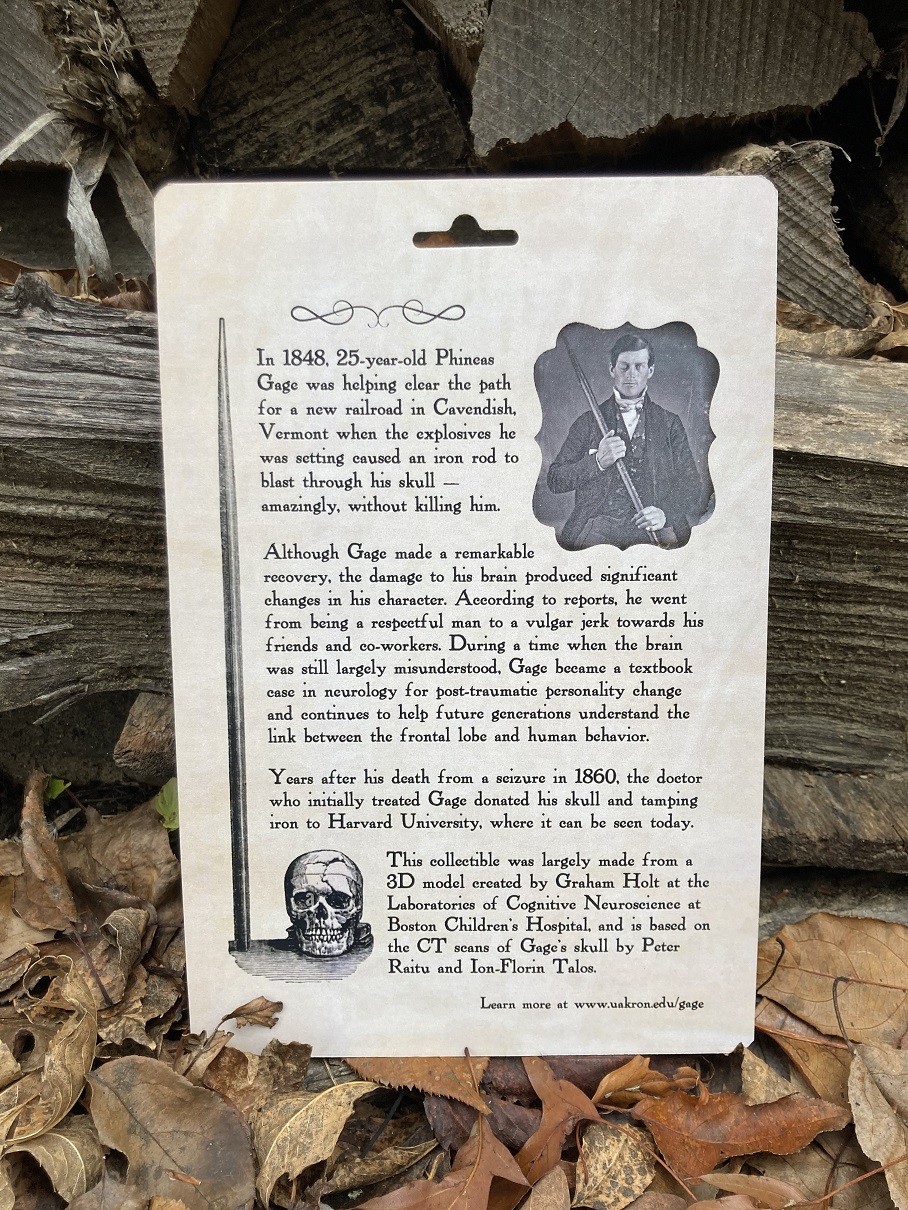 In 1848, 25-year-old Phineas
Gage was helping clear the path
for a new railroad in Cavendish,
Vermont when the explosives he
was setting caused an iron rod to
blast through his skull —
amazingly, without killing him.
Although Gage made a remarkable
recovery, the damage to his brain produced significant
changes in his character. According to reports, he went
from being a respectful man to a vulgar jerk towards his
friends and co-workers. During a time when the brain
was still largely misunderstood, Gage became a textbook
case in neurology for post-traumatic personality change
and continues to help future generations understand the
link between the frontal lobe and human behavior.
Years after his death from a seizure in 1860, the doctor
who initially treated Gage donated his skull and tamping
iron to Harvard University, where it can be seen today.
This collectible was largely made from a
3D model created by Graham Holt at the
Laboratories of Cognitive Neuroscience at
Boston Children's Hospital, and is based on
the CT scans of Gage's skull by Peter
Raitu and Ion-Florin Talos.
Learn more at www.uakron.edu/gage